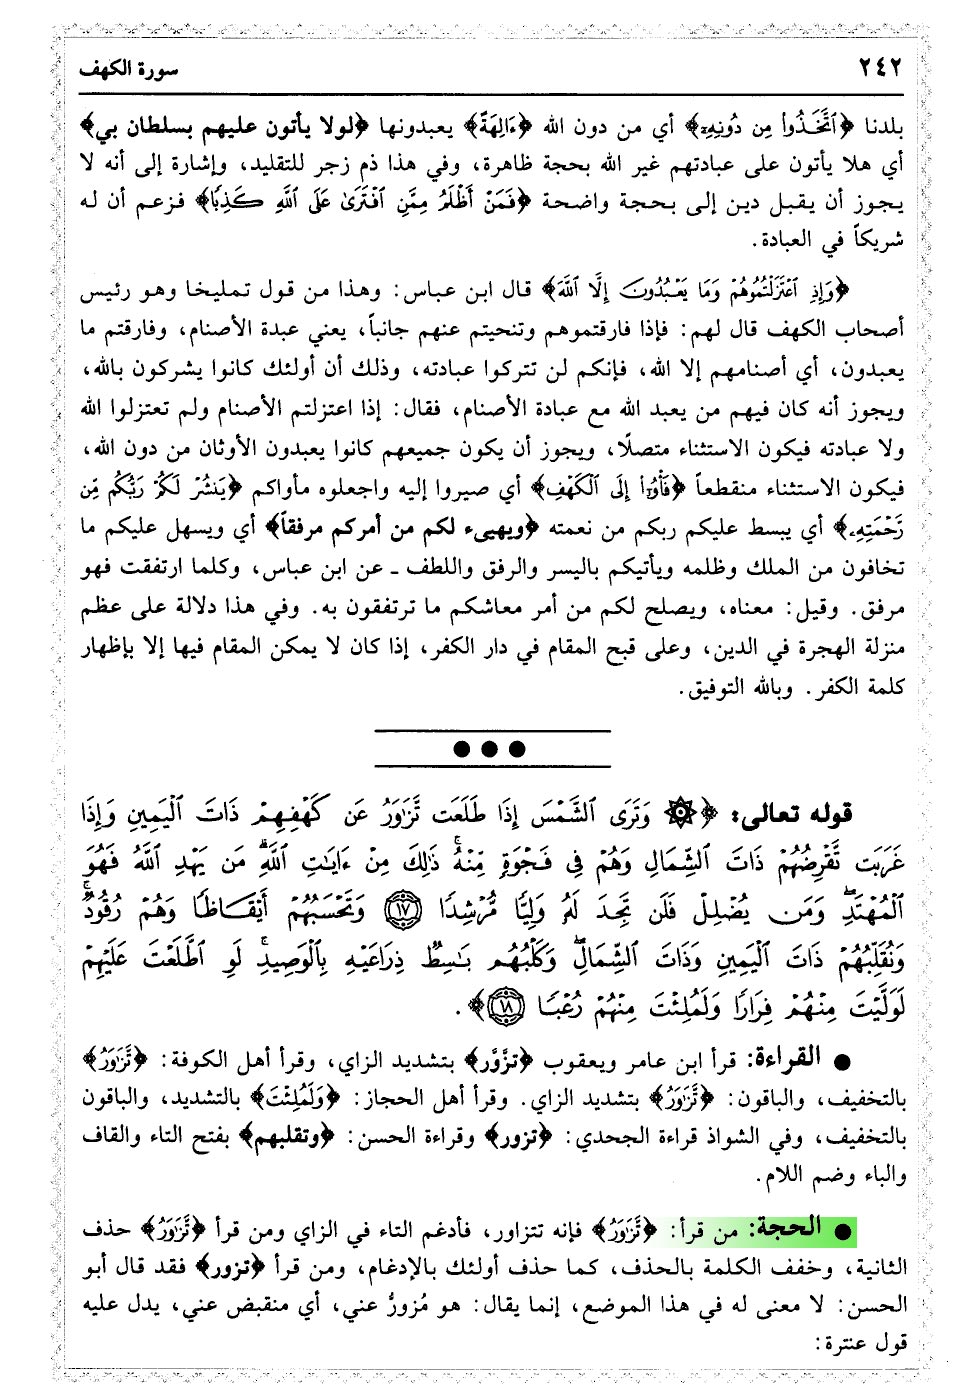 ٢٤٢
سورة الكهف
بلدنا ﴿ٱتَّخَذُوا۟ مِن دُونِهِۦٓ﴾ أي من دون الله ﴿ءَالِهَةً﴾ يعبدونها ﴿لولا يأتون عليهم بسلطان بي﴾
أي هلا يأتون على عبادتهم غير الله بحجة ظاهرة، وفي هذا ذم زجر للتقليد، وإشارة إلى أنه لا
يجوز أن يقبل دين إلى بحجة واضحة ﴿فَمَنْ أَظْلَمُ مِمَّنِ ٱفْتَرَىٰ عَلَى ٱللَّهِ كَذِبًا﴾ فزعم أن له
شريكاً في العبادة.
﴿وَإِذِ ٱعْتَزَلْتُمُوهُمْ وَمَا يَعْبُدُونَ إِلَّا ٱللَّهَ﴾ قال ابن عباس: وهذا من قول تمليخا وهو رئيس
أصحاب الكهف قال لهم: فإذا فارقتموهم وتنحيتم عنهم جانباً، يعني عبدة الأصنام، وفارقتم ما
يعبدون، أي أصنامهم إلا الله، فإنكم لن تتركوا عبادته، وذلك أن أولئك كانوا يشركون بالله،
ويجوز أنه كان فيهم من يعبد الله مع عبادة الأصنام، فقال: إذا اعتزلتم الأصنام ولم تعتزلوا الله
ولا عبادته فيكون الاستثناء متصلًا، ويجوز أن يكون جميعهم كانوا يعبدون الأوثان من دون الله،
فيكون الاستثناء منقطعاً ﴿فَأْوُۥٓا۟ إِلَى ٱلْكَهْفِ﴾ أي صيروا إليه واجعلوه مأواكم ﴿يَنشُرْ لَكُمْ رَبُّكُم مِّن
رَّحْمَتِهِۦ﴾ أي يبسط عليكم ربكم من نعمته ﴿ويهيىء لكم من أمركم مرفقاً﴾ أي ويسهل عليكم ما
تخافون من الملك وظلمه ويأتيكم باليسر والرفق واللطف ـ عن ابن عباس، وكلما ارتفقت فهو
مرفق. وقيل: معناه، ويصلح لكم من أمر معاشكم ما ترتفقون به. وفي هذا دلالة على عظم
منزلة الهجرة في الدين، وعلى قبح المقام في دار الكفر، إذا كان لا يمكن المقام فيها إلا بإظهار
كلمة الكفر. وبالله التوفيق.
قوله تعالى: ﴿۞ وَتَرَى ٱلشَّمْسَ إِذَا طَلَعَت تَّزَٰوَرُ عَن كَهْفِهِمْ ذَاتَ ٱلْيَمِينِ وَإِذَا
غَرَبَت تَّقْرِضُهُمْ ذَاتَ ٱلشِّمَالِ وَهُمْ فِى فَجْوَةٍ مِّنْهُ ۚ ذَٰلِكَ مِنْ ءَايَٰتِ ٱللَّهِ ۗ مَن يَهْدِ ٱللَّهُ فَهُوَ
ٱلْمُهْتَدِ ۖ وَمَن يُضْلِلْ فَلَن تَجِدَ لَهُۥ وَلِيًّا مُّرْشِدًا ١٧ وَتَحْسَبُهُمْ أَيْقَاظًا وَهُمْ رُقُودٌ ۚ
وَنُقَلِّبُهُمْ ذَاتَ ٱلْيَمِينِ وَذَاتَ ٱلشِّمَالِ ۖ وَكَلْبُهُم بَٰسِطٌ ذِرَاعَيْهِ بِٱلْوَصِيدِ ۚ لَوِ ٱطَّلَعْتَ عَلَيْهِمْ
لَوَلَّيْتَ مِنْهُمْ فِرَارًا وَلَمُلِئْتَ مِنْهُمْ رُعْبًا ١٨﴾.
● القراءة: قرأ ابن عامر ويعقوب ﴿تزْوَّر﴾ بتشديد الزاي، وقرأ أهل الكوفة: ﴿تَّزَٰوَرُ﴾
بالتخفيف، والباقون: ﴿تَّزَٰوَرُ﴾ بتشديد الزاي. وقرأ أهل الحجاز: ﴿وَلَمُلِئْتَ﴾ بالتشديد، والباقون
بالتخفيف، وفي الشواذ قراءة الجحدي: ﴿تزور﴾ وقراءة الحسن: ﴿وتقلبهم﴾ بفتح التاء والقاف
والباء وضم اللام.
● الحجة: من قرأ: ﴿تَّزَٰوَرُ﴾ فإنه تتزاور، فأدغم التاء في الزاي ومن قرأ ﴿تَّزَٰوَرُ﴾ حذف
الثانية، وخفف الكلمة بالحذف، كما حذف أولئك بالإدغام، ومن قرأ ﴿تزور﴾ فقد قال أبو
الحسن: لا معنى له في هذا الموضع، إنما يقال: هو مُزورٌّ عني، أي منقبض عني، يدل عليه
قول عنترة: